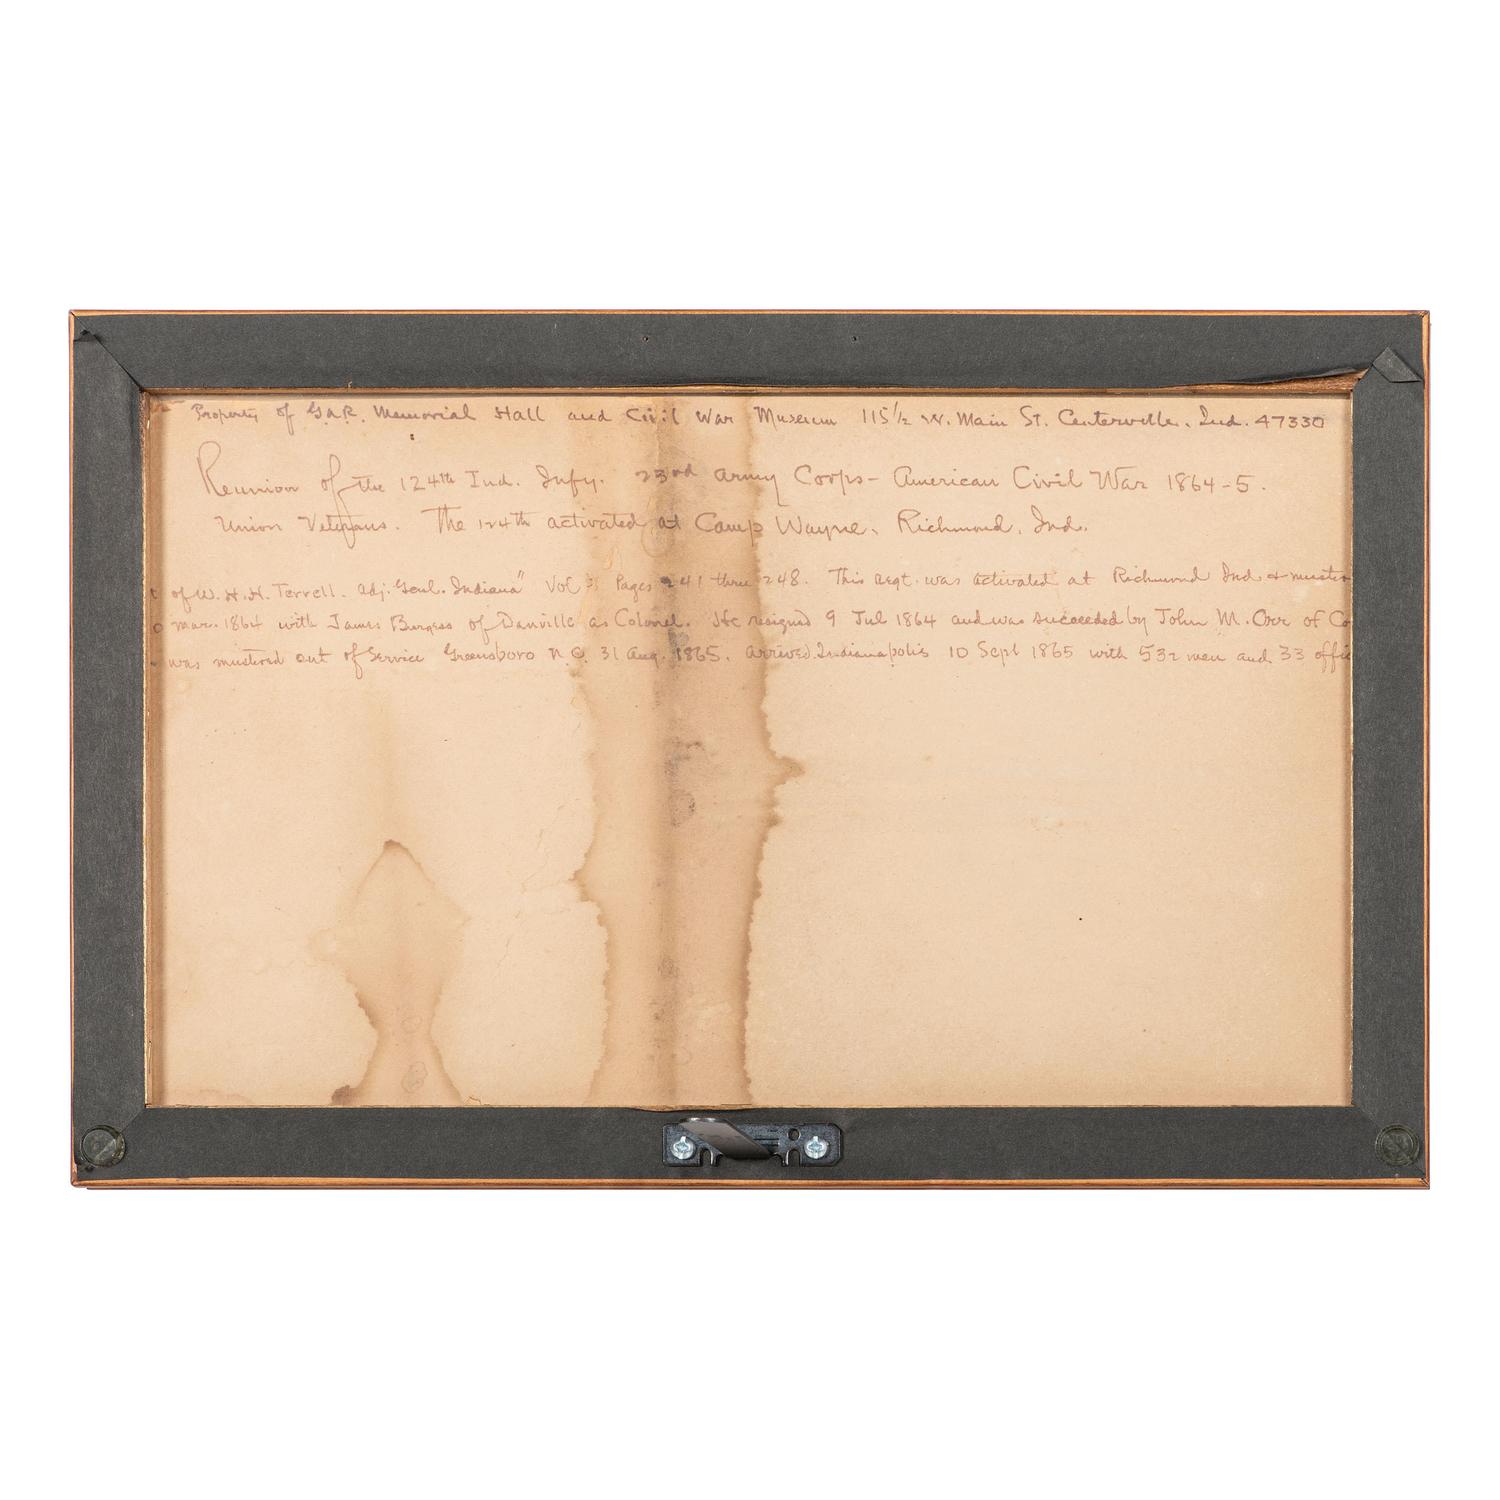 Property of G.A.R. Memorial Hall and Civil War Museum 115 1/2 W. Main St. Centerville, Ind. 47330
Reunion of the 124th Ind. Infy. 23rd Army Corps - American Civil War 1864-5.
Union Veterans. The 124th activated at Camp Wayne, Richmond, Ind.
of W. H. H. Terrell. Adj. Genl. Indiana" Vol 3 Pages 241 thru 248. This regt. was activated at Richmond Ind. & muster
Mar. 1864 with James Burgess of Danville as Colonel. He resigned 9 Jul 1864 and was succeeded by John M. Orr of Co
was mustered out of Service Greensboro N.C. 31 Aug. 1865. Arrived Indianapolis 10 Sept 1865 with 532 men and 33 offic